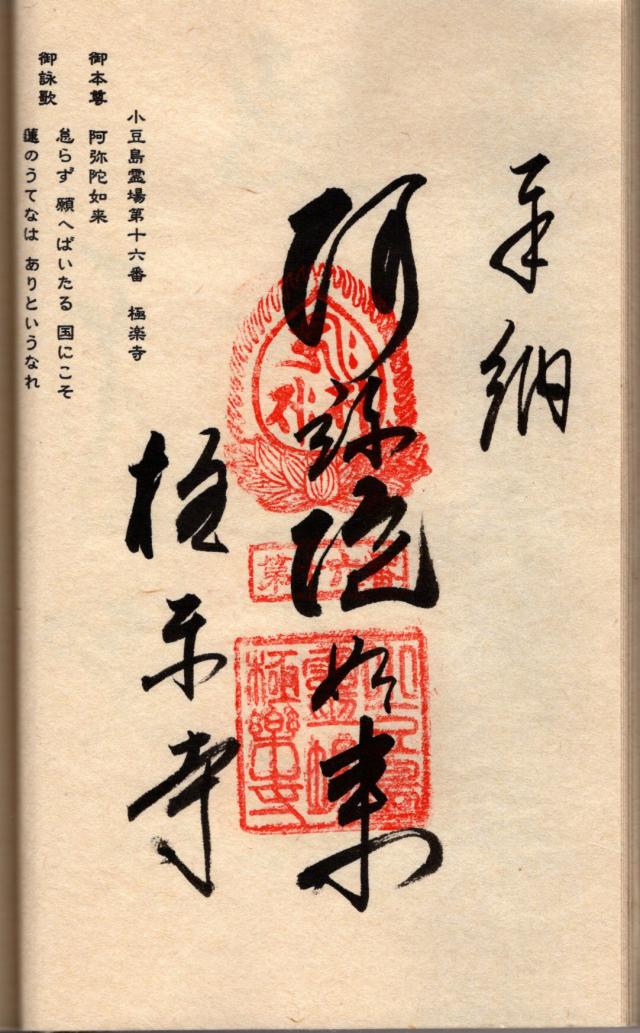 奉納
阿弥陀如来
極楽寺
第十六番
小豆島
霊場
極樂寺
小豆島霊場第十六番 極楽寺
御本尊 阿弥陀如来
御詠歌 怠らず 願へばいたる 国にこそ
蓮のうてなは ありというなれ